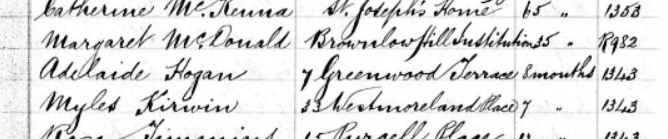 Catherine McKenna St. Joseph's Home 65 " 1353
Margaret McDonald Brownlow Hill Institution 35 " R982
Adelaide Hogan 7 Greenwood Terrace 8 months 1343
Myles Kirwin 33 Westmoreland Place 7 " 1343
Rose Timmins 15 Purcell Place " 1343